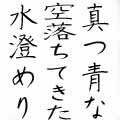 真つ青な
空落ちてきた
水澄めり